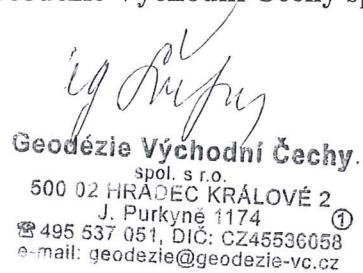 Geodézie Východní Čechy
Geodézie Východní Čechy.
spol. s r.o.
500 02 HRADEC KRÁLOVÉ 2
J. Purkyně 1174 ①
☎ 495 537 051, DIČ: CZ45536058
e-mail: geodezie@geodezie-vc.cz